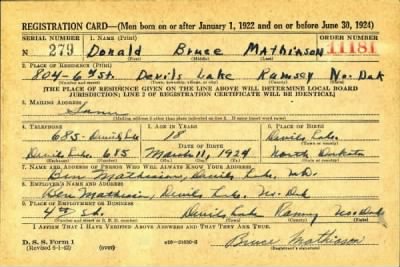 REGISTRATION CARD—(Men born on or after January 1, 1922 and on or before June 30, 1924)
SERIAL NUMBER 1. NAME (Print) ORDER NUMBER
N 279 Donald Bruce Mathieson 11181
(First) (Middle) (Last)
2. PLACE OF RESIDENCE (Print)
804-6th St. Devils Lake Ramsey No. Dak
[THE PLACE OF RESIDENCE GIVEN ON THE LINE ABOVE WILL DETERMINE LOCAL BOARD
JURISDICTION; LINE 2 OF REGISTRATION CERTIFICATE WILL BE IDENTICAL]
3. MAILING ADDRESS
Same
4. TELEPHONE 5. AGE IN YEARS 6. PLACE OF BIRTH
685 - Devils Lake 18 Devils Lake
DATE OF BIRTH
Devils Lake 685 March 11, 1924 North Dakota
7. NAME AND ADDRESS OF PERSON WHO WILL ALWAYS KNOW YOUR ADDRESS
Ben Mathieson, Devils Lake, N.D.
8. EMPLOYER'S NAME AND ADDRESS
Ben Mathieson, Devils Lake, No. Dak
9. PLACE OF EMPLOYMENT OR BUSINESS
4th St. Devils Lake Ramsey No. Dak
I AFFIRM THAT I HAVE VERIFIED ABOVE ANSWERS AND THAT THEY ARE TRUE.
D. S. S. Form 1
(Revised 6-1-42) (over) Bruce Mathieson